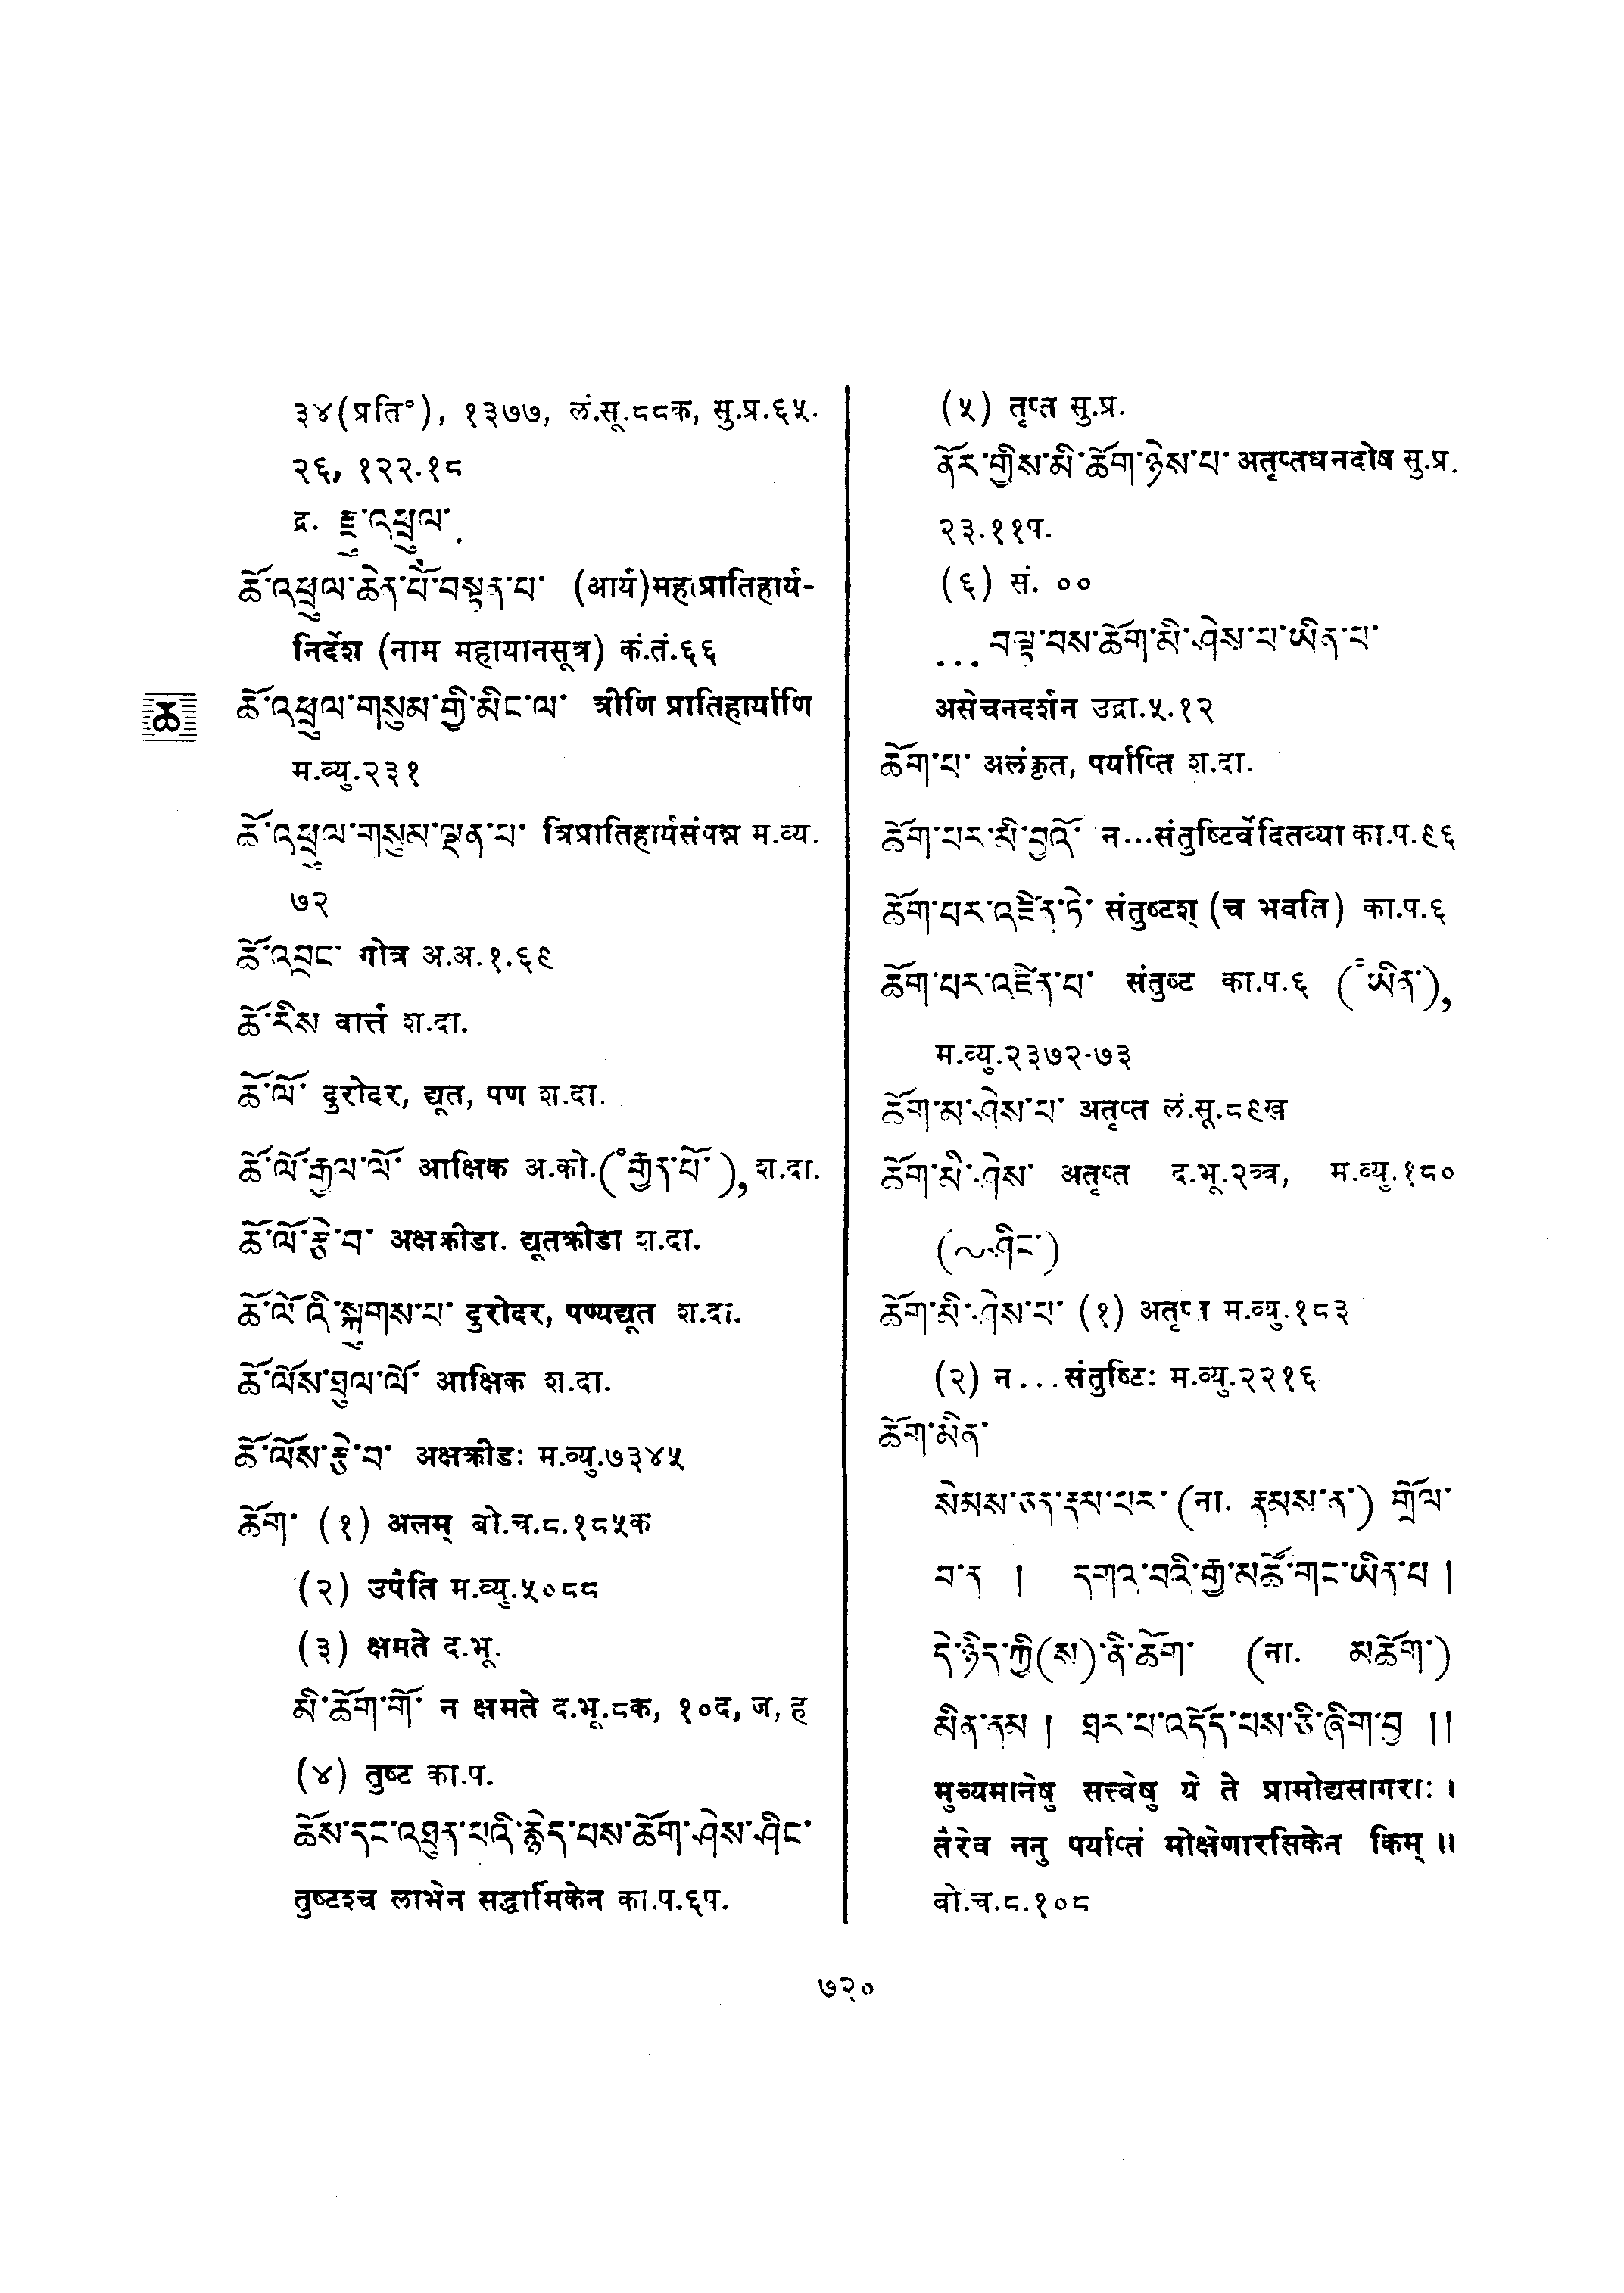 ३४(प्रति°), १३७७, लं.सू.८८क, सु.प्र.६५.
२६, १२२.१८
द्र. རྫུ་འཕྲུལ་.
ཆོ་འཕྲུལ་ཆེན་པོ་བསྟན་པ་ (आर्य)महाप्रातिहार्य-
निर्देश (नाम महायानसूत्र) कं.तं.६६
ཆ
ཆོ་འཕྲུལ་གསུམ་གྱི་མིང་ལ་ त्रीणि प्रातिहार्याणि
म.व्यु.२३१
ཆོ་འཕྲུལ་གསུམ་ལྡན་པ་ त्रिप्रातिहार्यसंपन्न म.व्य.
७२
ཆོ་འབྲང་ गोत्र अ.अ.१.६९
ཆོ་རིས वार्त्त श.दा.
ཆོ་ལོ་ दुरोदर, द्यूत, पण श.दा.
ཆོ་ལོ་རྒྱལ་ལོ་ आक्षिक अ.को.(°རྒྱན་པོ་), श.दा.
ཆོ་ལོ་རྩེ་བ་ अक्षक्रीडा. द्यूतक्रीडा श.दा.
ཆོ་ལོའི་སྐུགས་པ་ दुरोदर, पण्यद्यूत श.दा.
ཆོ་ལོས་ཐུལ་ལོ་ आक्षिक श.दा.
ཆོ་ལོས་རྩེ་བ་ अक्षक्रीडः म.व्यु.७३४५
ཆོག་ (१) अलम् बो.च.८.१८५क
(२) उपैति म.व्यु.५०८८
(३) क्षमते द.भू.
མི་ཆོག་གོ་ न क्षमते द.भू.८क, १०द, ज, ह
(४) तुष्ट का.प.
ཆོས་དང་འཐུན་པའི་རྙེད་པས་ཆོག་ཤེས་ཤིང་
तुष्टश्च लाभेन सद्धार्मिकेन का.प.६प.
(५) तृप्त सु.प्र.
ནོར་གྱིས་མི་ཆོག་ཉེས་པ་ अतृप्तधनदोष सु.प्र.
२३.११प.
(६) सं. ००
... བལྟ་བས་ཆོག་མི་ཤེས་པ་ཡིན་པ་
असेचनदर्शन उद्रा.५.१२
ཆོག་པ་ अलंकृत, पर्याप्ति श.दा.
ཆོག་པར་མི་བྱའོ་ न...संतुष्टिर्वेदितव्या का.प.९६
ཆོག་པར་འཛིན་ཏེ་ संतुष्टश् (च भवति) का.प.६
ཆོག་པར་འཛིན་པ་ संतुष्ट का.प.६ (°ཡིན་),
म.व्यु.२३७२-७३
ཆོག་མ་ཤེས་པ་ अतृप्त लं.सू.८९ख
ཆོག་མི་ཤེས་ अतृप्त द.भू.२व्व, म.व्यु.१८०
(~ཤིང་)
ཆོག་མི་ཤེས་པ་ (१) अतृप्त म.व्यु.१८३
(२) न...संतुष्टिः म.व्यु.२२१६
ཆོག་མིན་
སེམས་ཅན་རྣམ་པར་ (ना. རྣམས་ན་) གྲོལ་
བ་ན ། དགའ་བའི་རྒྱ་མཚོ་གང་ཡིན་པ །
དེ་ཉིད་ཀྱི(ས)་ནི་ཆོག་ (ना. མཆོག་)
མིན་ནམ ། ཐར་པ་འདོད་པས་ཅི་ཞིག་བྱ །།
मुच्यमानेषु सत्त्वेषु ये ते प्रामोद्यसागराः ।
तैरेव ननु पर्याप्तं मोक्षेणारसिकेन किम् ॥
बो.च.८.१०८
७२०